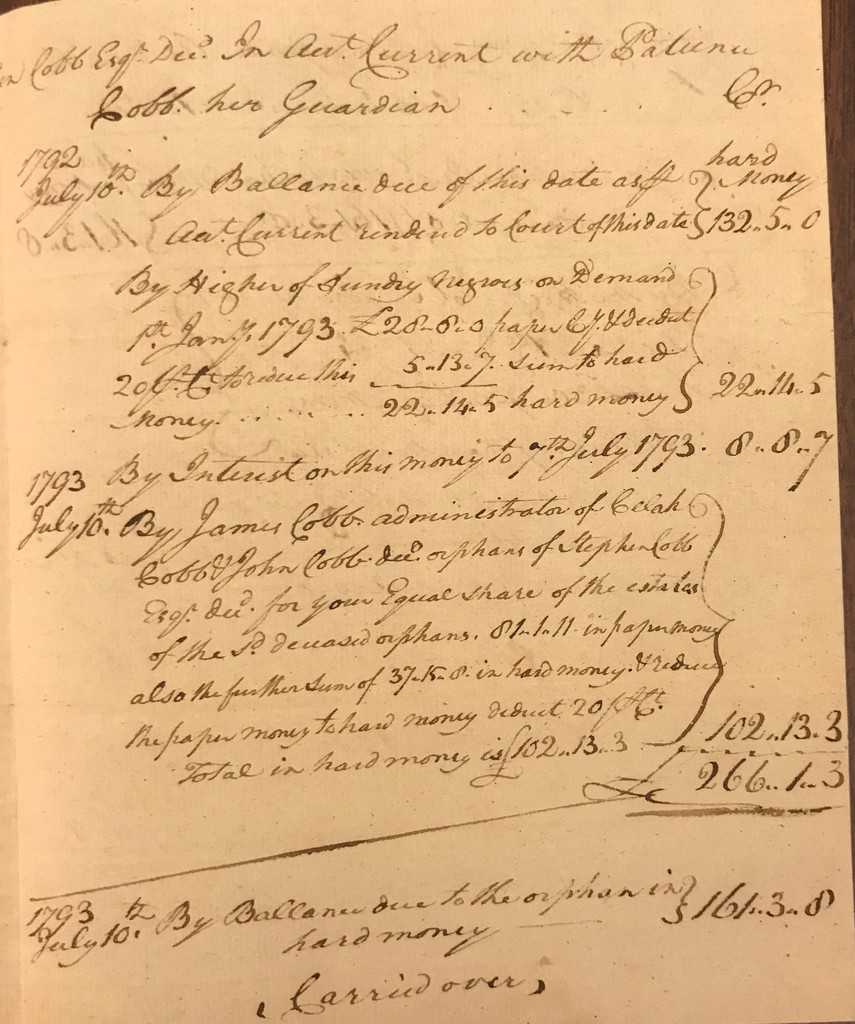 Cobb Esqr. Decd. In Acct. Current with Patience
Cobb. her Guardian . . . . Cr.
1792 hard
July 10th. By Ballance due of this date as pr Money
Acct. Current rendred to Court of this date 132.. 5.. 0
By Higher of Sundry Negroes on Demand
1st. Jany. 1793. £28..8..0 paper Cy. & deduct
20 pr. Ct. to reduce this 5..13..7. sum to hard
Money. . . . . . . . 22..14..5 hard money 22..14..5
By Interest on this money to 7th. July 1793. 8..8..7
1793
July 10th. By James Cobb. administrator of
Cobb & John Cobb. decd. orphans of Stephen Cobb
Esqr. decd. for your Equal share of the estates
of the sd. deceased orphans. 81..1..11 in paper money
also the further sum of 37..15..8. in hard money. & reduce
the paper money to hard money deduct 20 pr. Ct.
Total in hard money is £102..13..3 102..13..3
£ 266..1..3
1793
July 10th. By Ballance due to the orphan in 161..3..8
hard money
Carried over